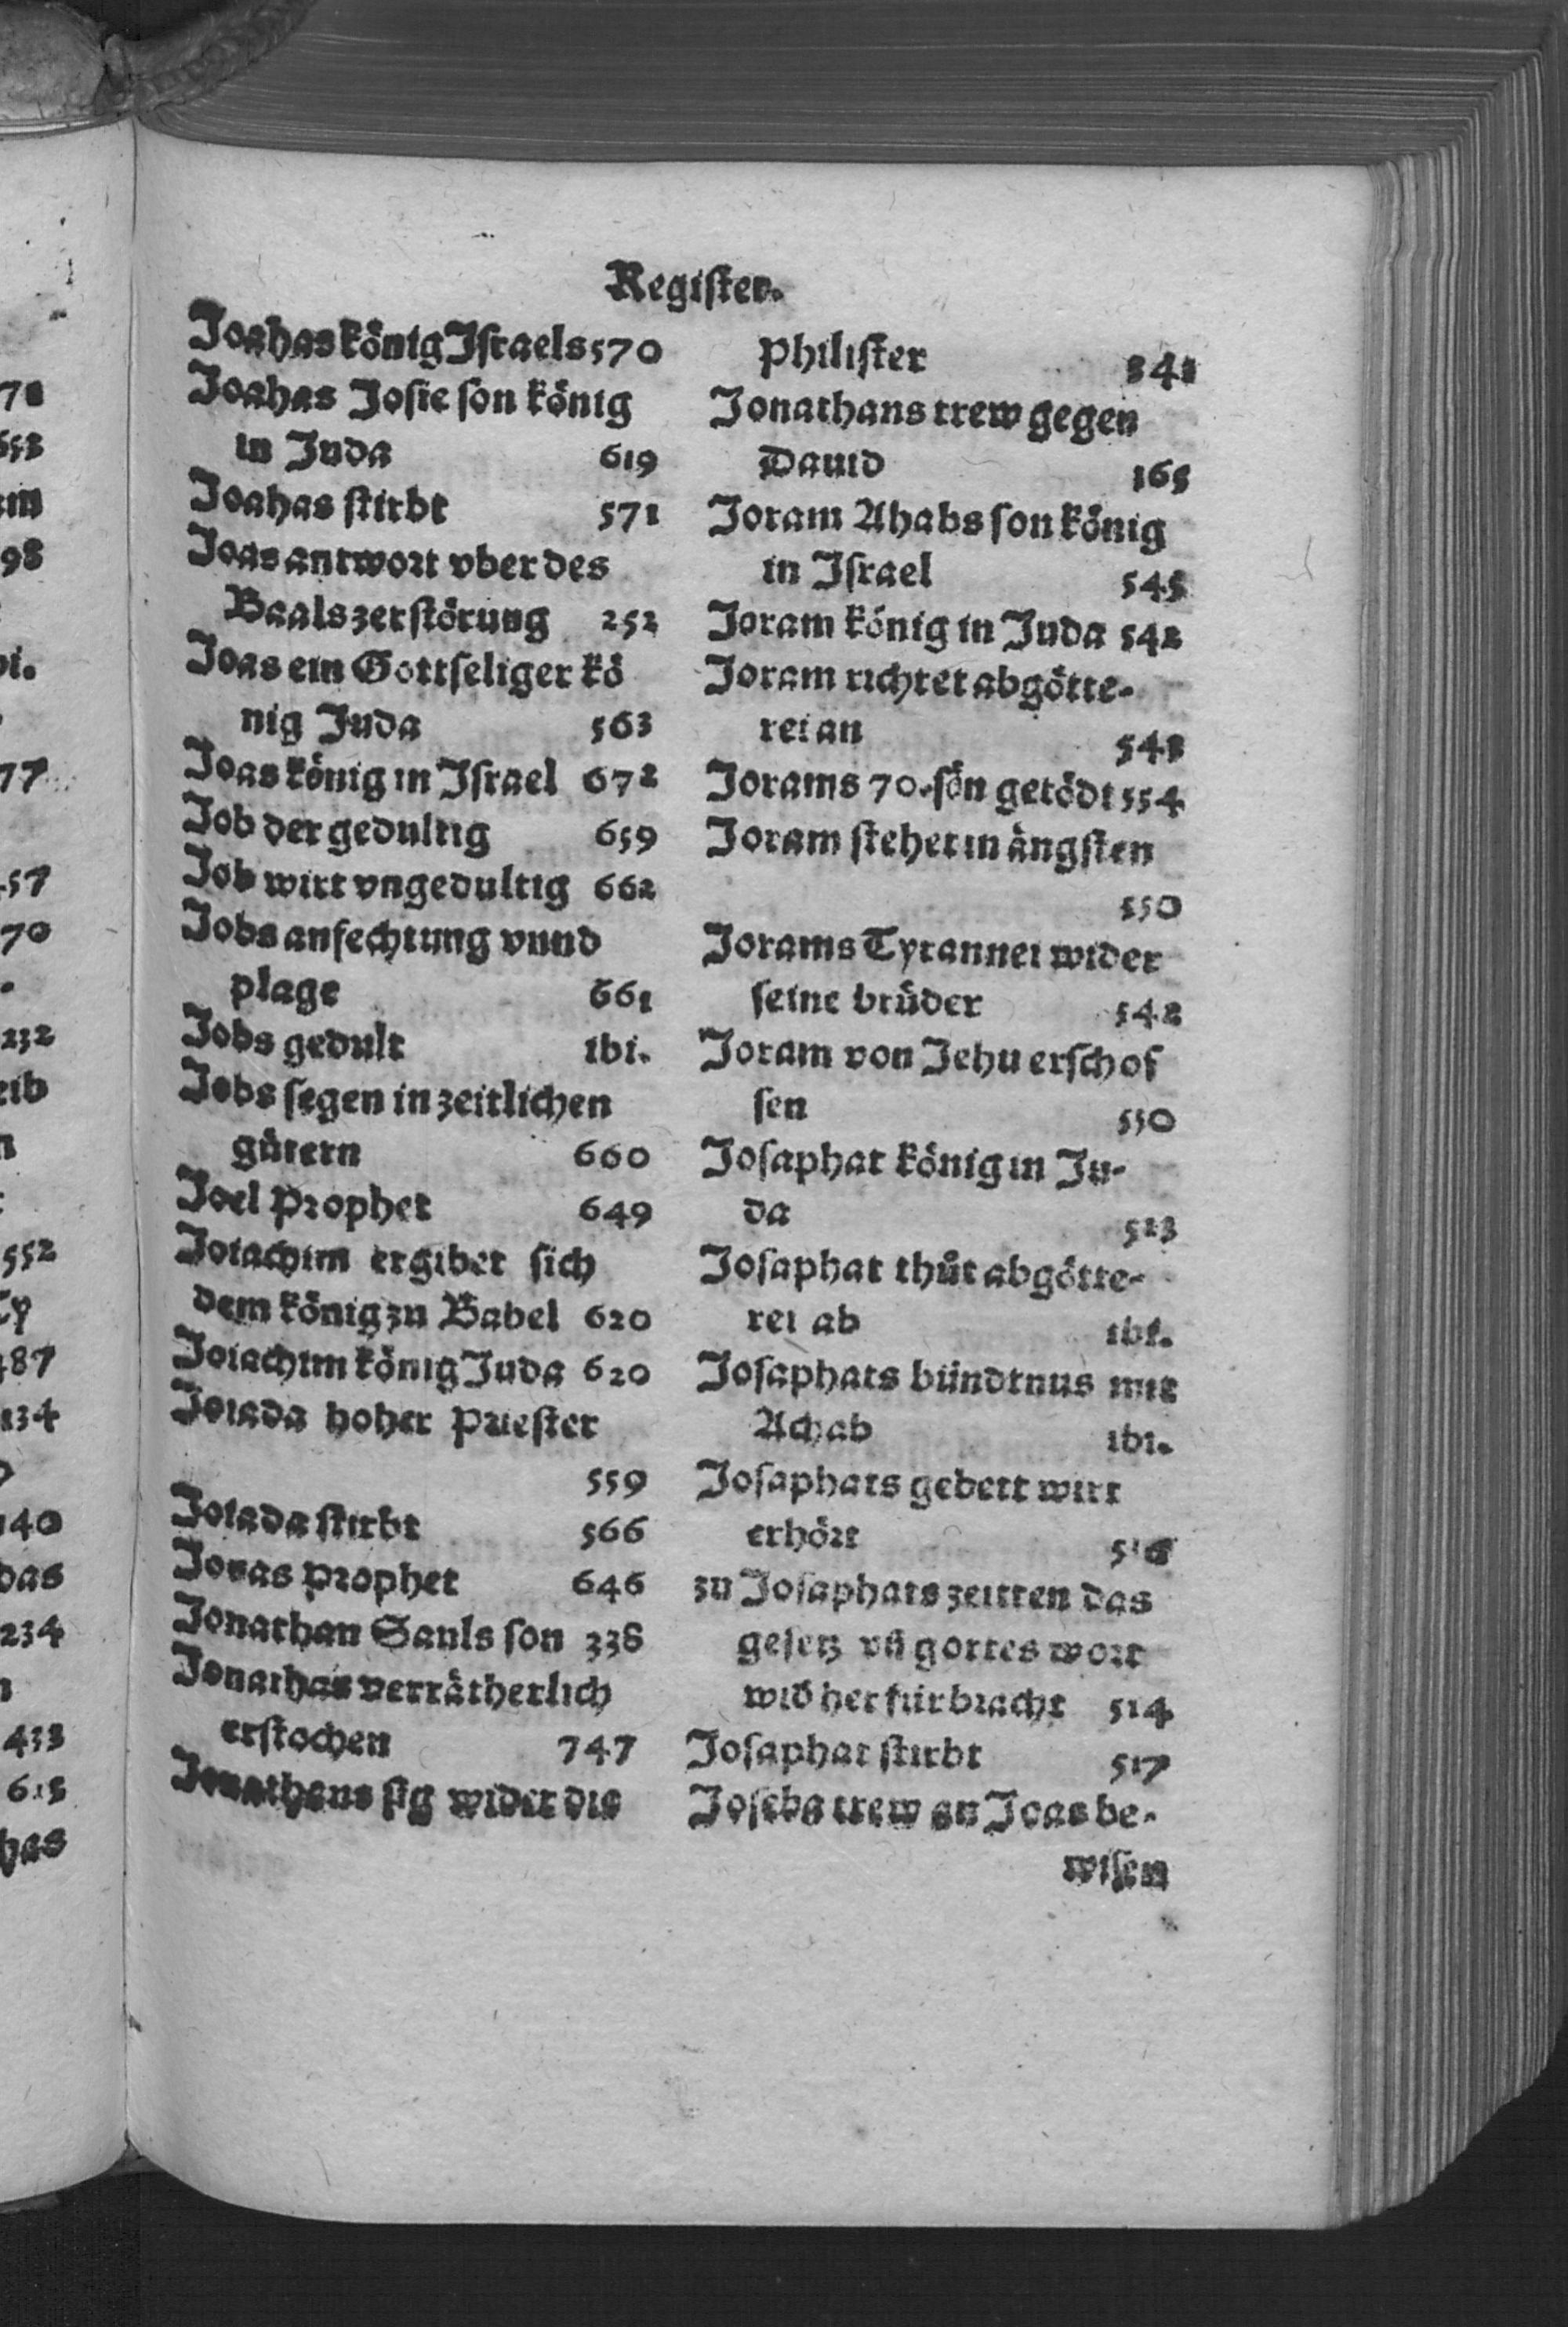 Register.
Joahas könig Israels 570
Joahas Josie son könig
in Juda 619
Joahas stirbt 571
Joas antwort vber des
Baals zerstörung 252
Joas ein Gottseliger kö
nig Juda 563
Joas könig in Israel 672
Job der gedultig 659
Job wirt vngedultig 662
Jobs anfechtung vnnd
plage 661
Jobs gedult ibi.
Jobs segen in zeitlichen
gütern 660
Joel Prophet 649
Joiachim ergibet sich
dem könig zu Babel 620
Joiachim könig Juda 620
Joiada hoher Priester
559
Joiada stirbt 566
Jonas prophet 646
Jonathan Sauls son 338
Jonathas verrätherlich
erstochen 747
Jonathans sig wider die
Philister 341
Jonathans trew gegen
Dauid 365
Joram Ahabs son könig
in Israel 545
Joram könig in Juda 542
Joram richtet abgötte-
rei an 543
Jorams 70. sön getödt 554
Joram stehet in ängsten
550
Jorams Tyrannei wider
seine brüder 542
Joram von Jehu erschos
sen 550
Josaphat könig in Ju-
da 513
Josaphat thůt abgötte-
rei ab ibi.
Josaphats bündtnus mit
Achab ibi.
Josaphats gebett wirt
erhört 516
zu Josaphats zeitten das
gesetz vñ gottes wort
wid herfürbracht 514
Josaphat stirbt 517
Josebs trew an Joas be-
wisen